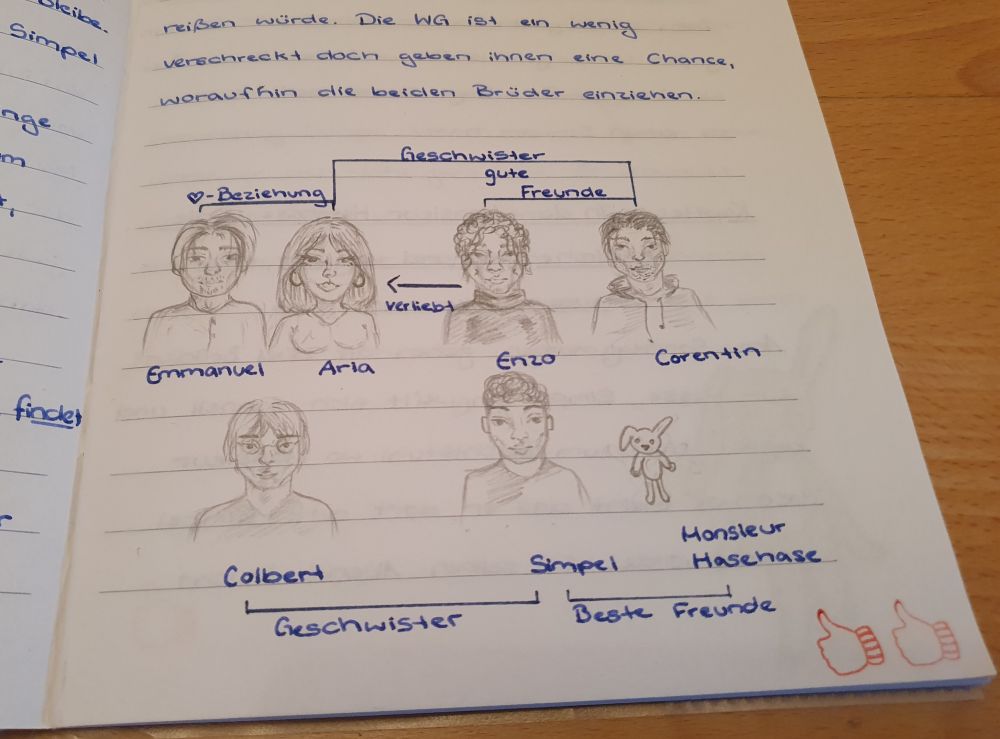 bleibe.
Simpel
nge
m
t,
findet
r
reißen würde. Die WG ist ein wenig
verschreckt doch geben ihnen eine Chance,
woraufhin die beiden Brüder einziehen.
Geschwister
gute
♡-Beziehung
Freunde
verliebt
Emmanuel Aria Enzo Corentin
Colbert Simpel Monsieur
Hasehase
Geschwister Beste Freunde